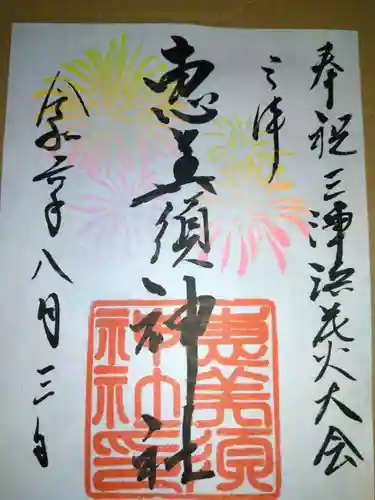 奉祝三津浜花火大会
三津
恵美須神社
令和元年八月三日
恵美須
神社印